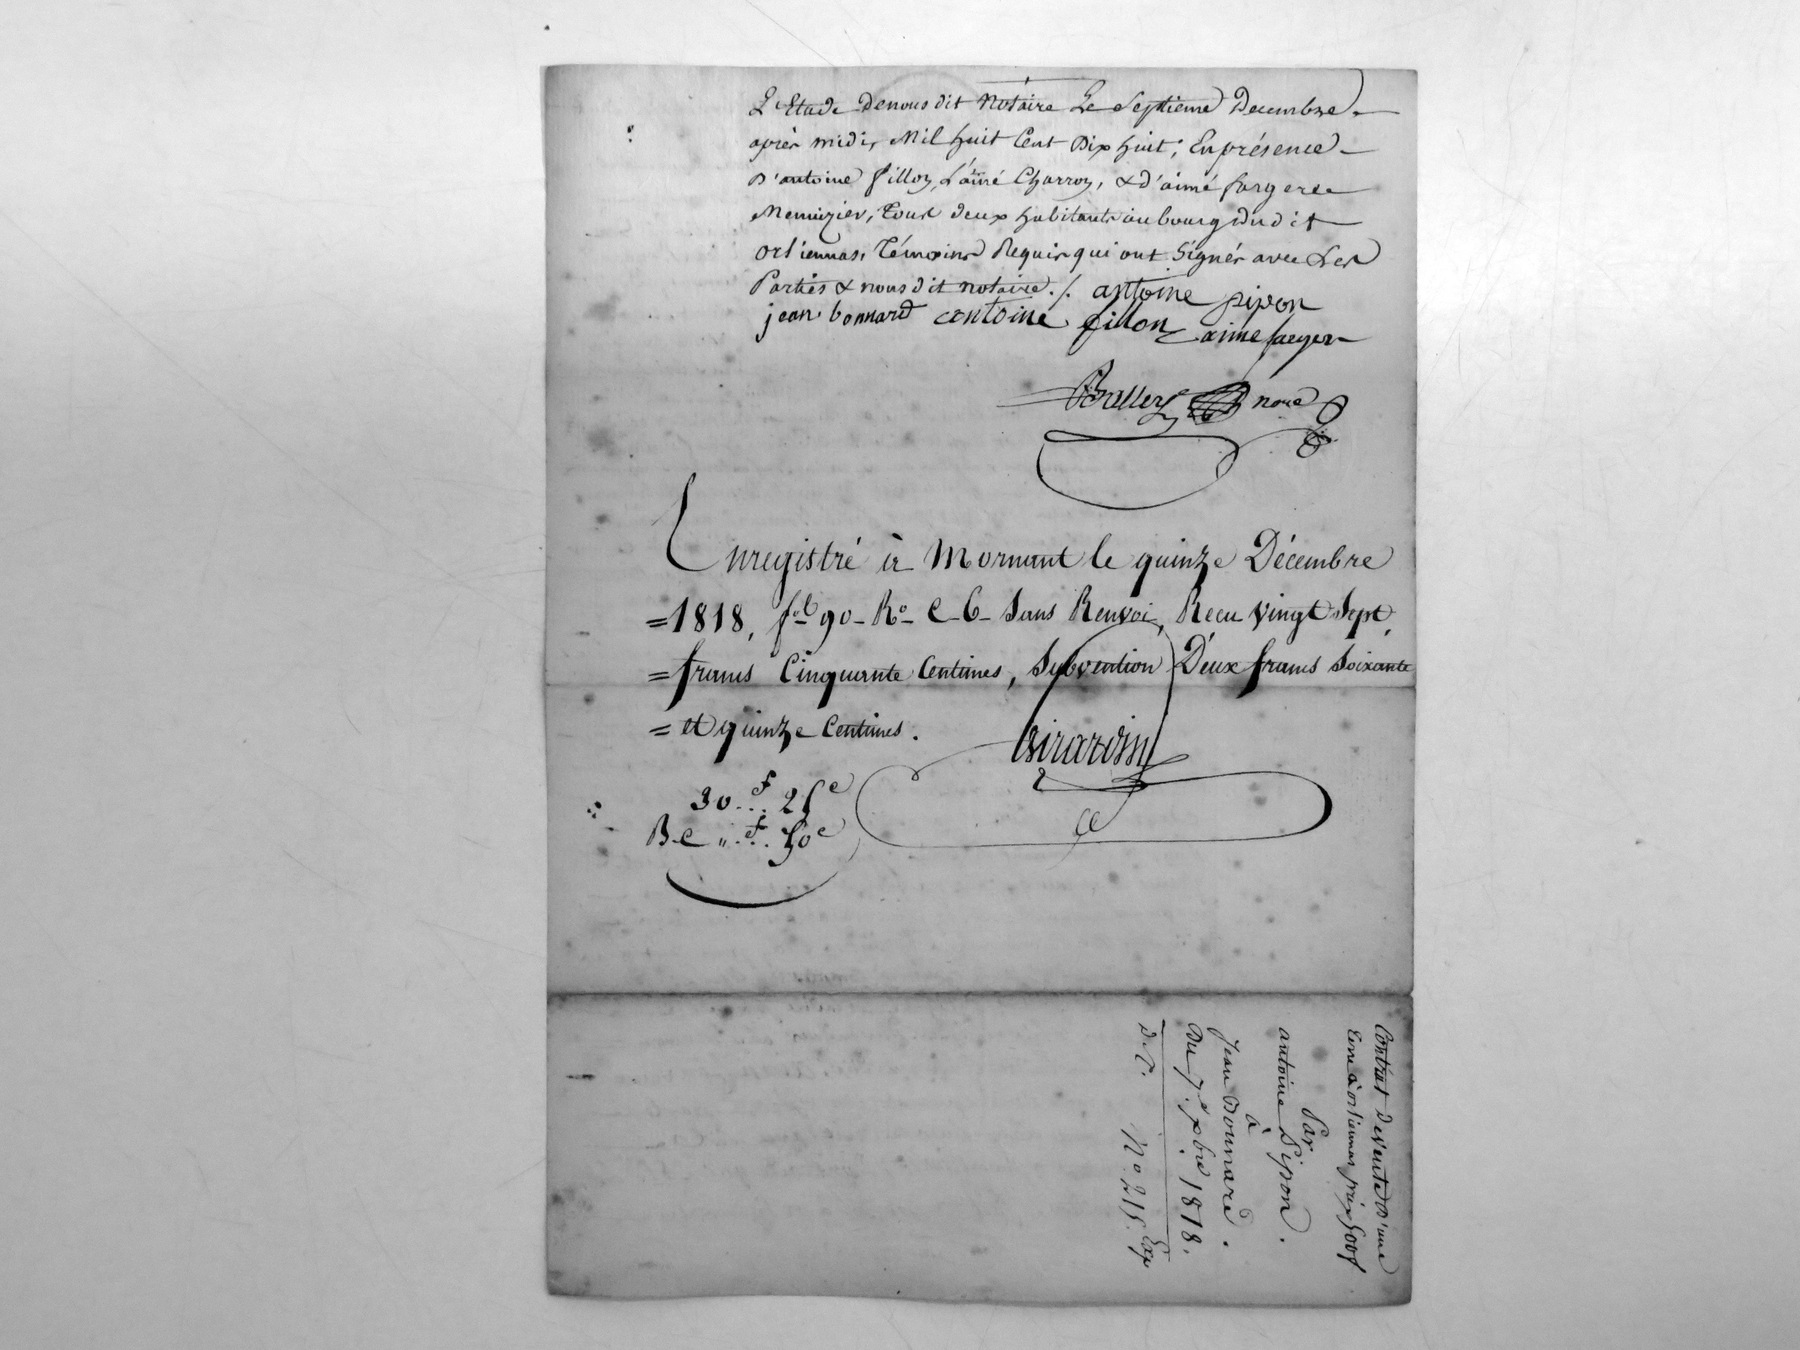 L'Etude Denous dit Notaire Le Septieme Decembre
après midi, Mil huit Cent Dix huit; En présence
D'antoine fillon, L'ainé Charron, & d'aimé fargere
Menuizier, Tous deux habitants au bourg dudit
Orliennas, Témoins Requis qui ont Signés avec Les
Parties & nous dit notaire ./. antoine pipon
jean bonnard antoine fillon aime farger
Balley nore
Enregistré à Mornant le quinze Décembre
=1818, fol 90 Ro C 6 Sans Renvoi, Recu Vingt Sept
=francs Cinquante Centimes, Subvention Deux francs Soixante
= et quinze Centimes.
Girardin
30 f... 25c
B.C " f... 50c
Contrat de Vente D'une
terre à orliennas prix 500f
Par
antoine Pipon.
à
Jean Bonnard.
Du 7. Xbre 1818.
D.t. No. 215. Exp